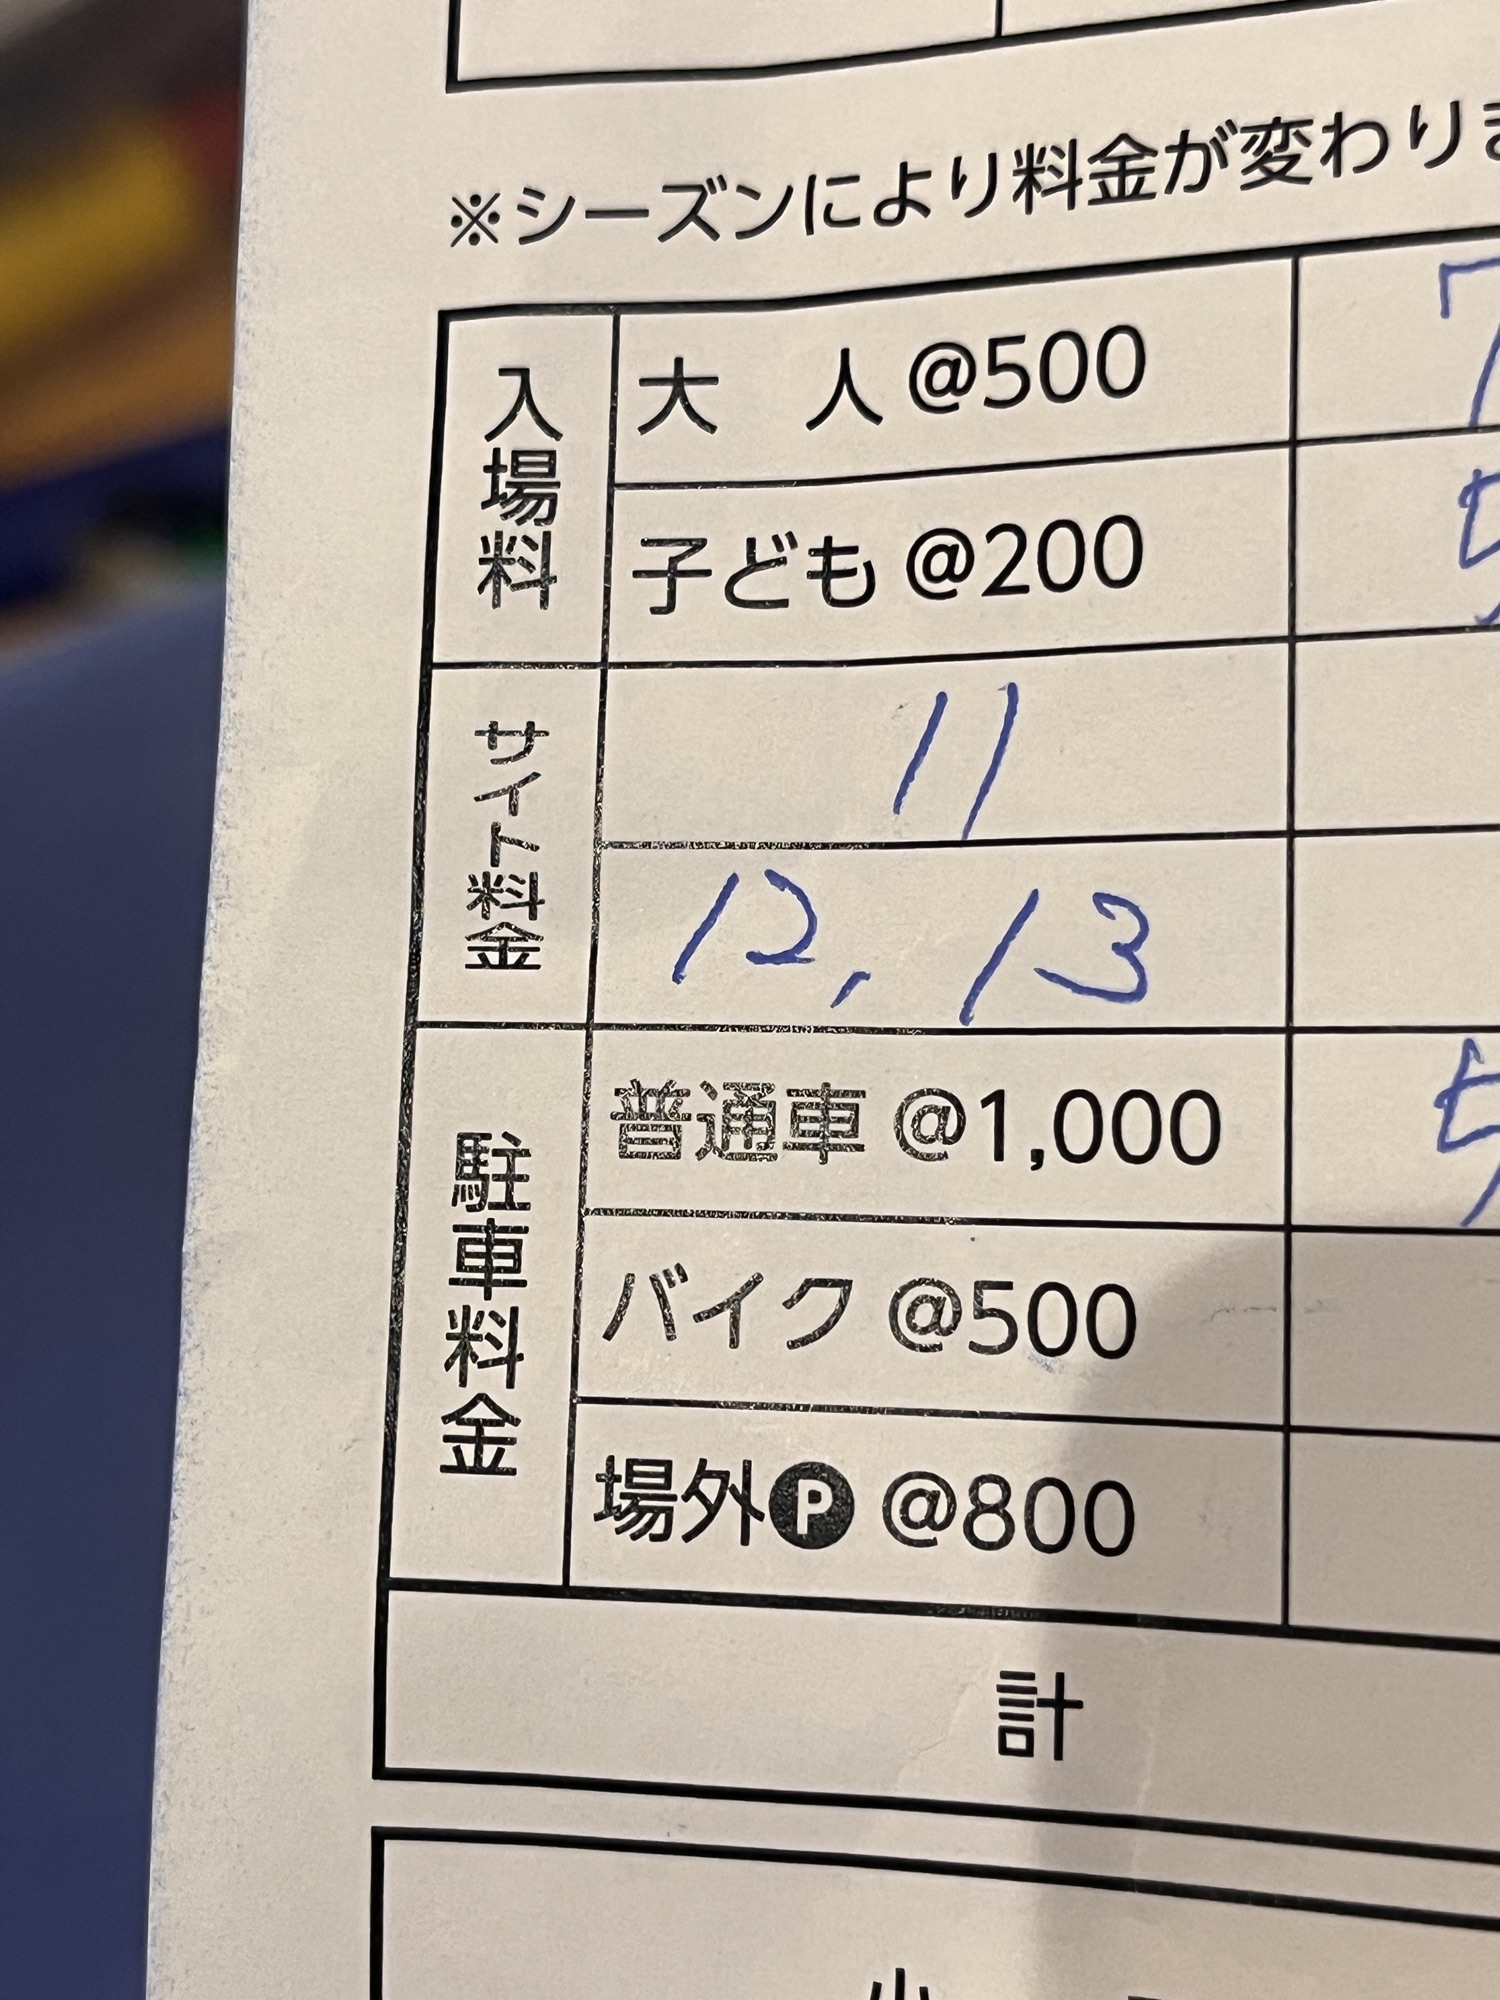 ※シーズンにより料金が変わりま
入場料
大 人 @500
7
子ども @200
5
サイト料金
11
12, 13
駐車料金
普通車 @1,000
5
バイク @500
場外P @800
計